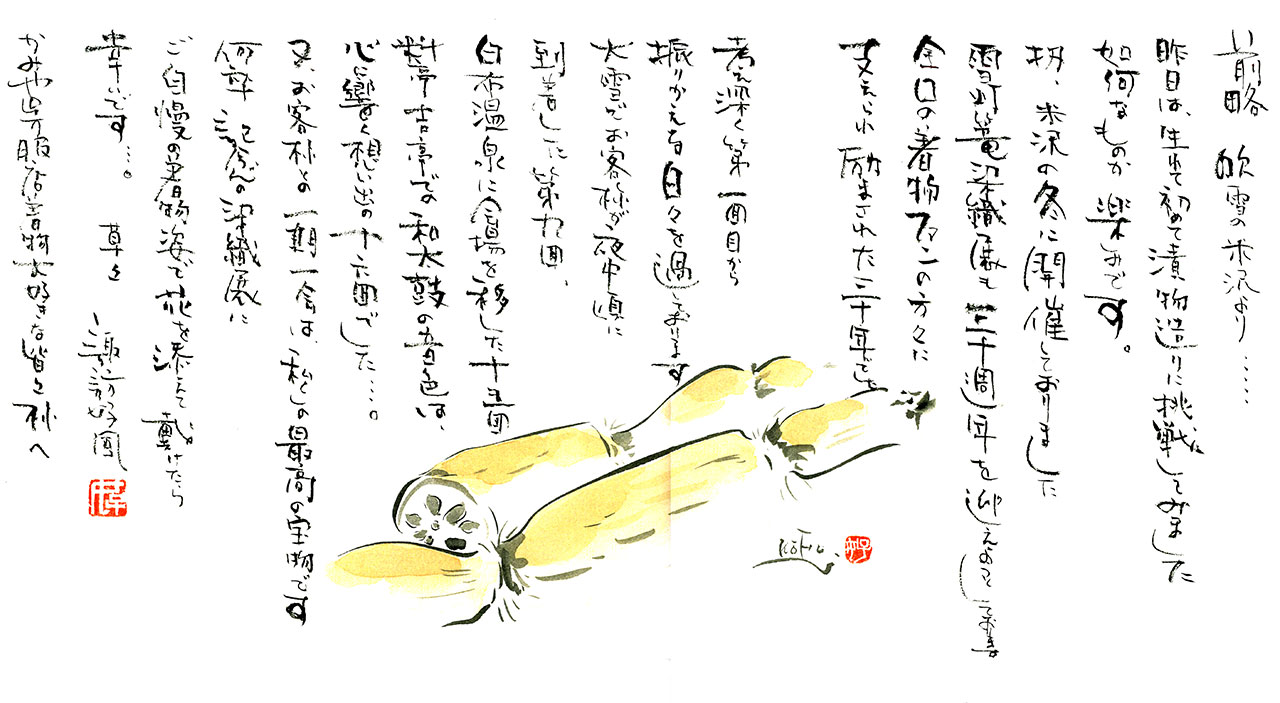 前略 吹雪の米沢より……
昨日は、生れて初めて漬物造りに挑戦してみました
如何なものか楽しみです。
扨、米沢の冬に開催しておりました
雪灯篭染織展も二十週年を迎えようとしております
全国の着物ファンの方々に
支えられ励まされた二十年でした
考え深く第一回目から
振りかえる日々を過しております
大雪でお客様が夜中頃に
到着した第九回、
白布温泉に会場を移した十五回
料亭吉亭での和太鼓の音色は、
心に響く想い出の十六回でした……。
又、お客様との一期一会は、私しの最高の宝物です
何卒 記念の染織展に
ご自慢の着物姿で花を添えて戴けたら
幸いです…。 草々
かみや呉服店着物大好きな皆々様へ
Kofu